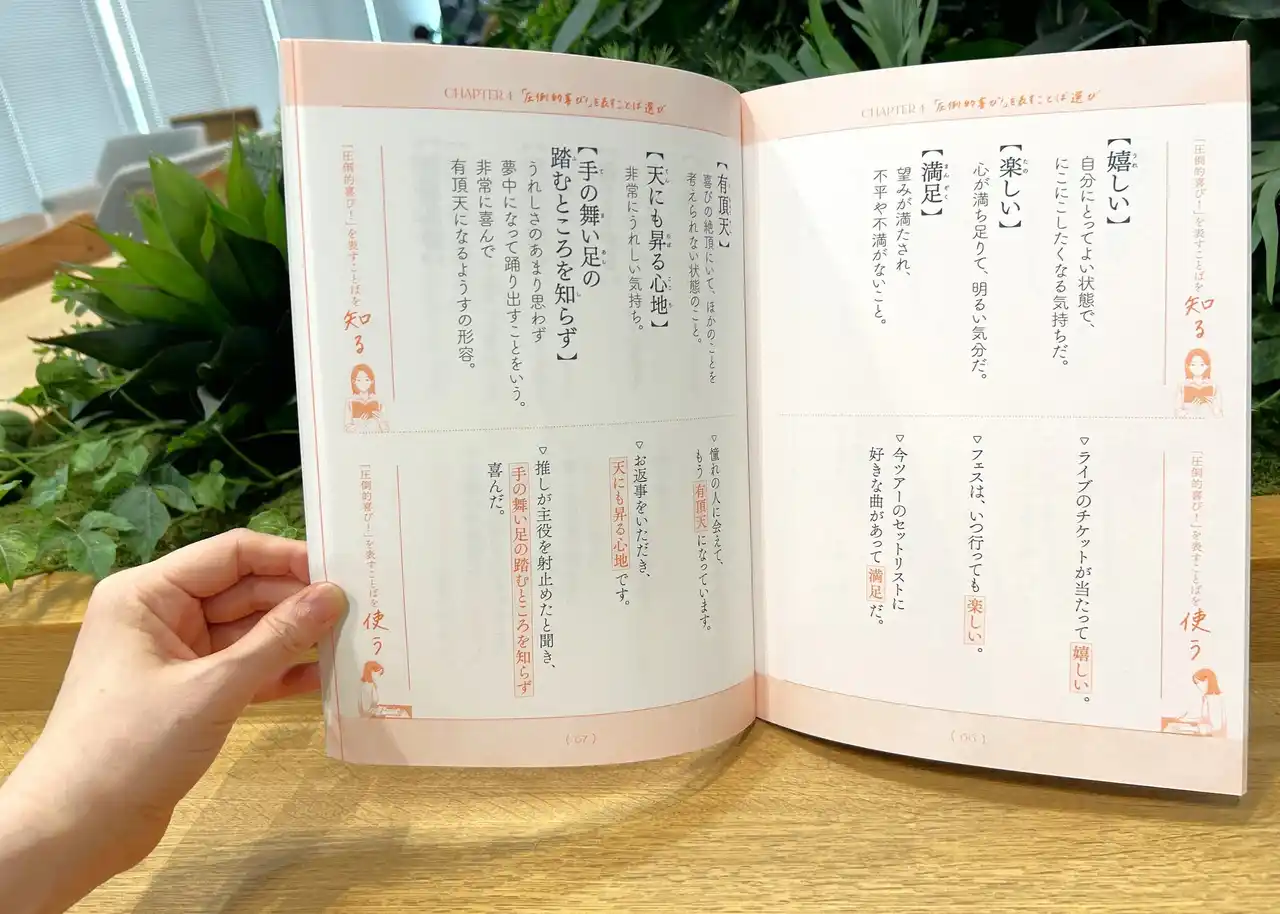 CHAPTER 4 「圧倒的喜び!」を表すことば選び
「圧倒的喜び!」を表すことばを
知る
【嬉しい】
うれ
自分にとってよい状態で、
にこにこしたくなる気持ちだ。
【楽しい】
たの
心が満ち足りて、明るい気分だ。
【満足】
まんぞく
望みが満たされ、
不平や不満がないこと。
「圧倒的喜び!」を表すことばを
使う
▽ライブのチケットが当たって嬉しい。
▽フェスは、いつ行っても楽しい。
▽今ツアーのセットリストに
好きな曲があって満足だ。
CHAPTER 4 「圧倒的喜び!」を表すことば選び
【有頂天】
喜びの絶頂にいて、ほかのことを
考えられない状態のこと。
【天にも昇る心地】
てん
のぼ
ここち
非常にうれしい気持ち。
【手の舞い足の
て
ま
あし
踏むところを知らず】
ふ
し
うれしさのあまり思わず
夢中になって踊り出すことをいう。
非常に喜んで
有頂天になるようすの形容。
「圧倒的喜び!」を表すことばを
知る
▽憧れの人に会えて、
もう有頂天になっています。
▽お返事をいただき、
天にも昇る心地です。
▽推しが主役を射止めたと聞き、
手の舞い足の踏むところを知らず
喜んだ。
「圧倒的喜び!」を表すことばを
使う
(67)